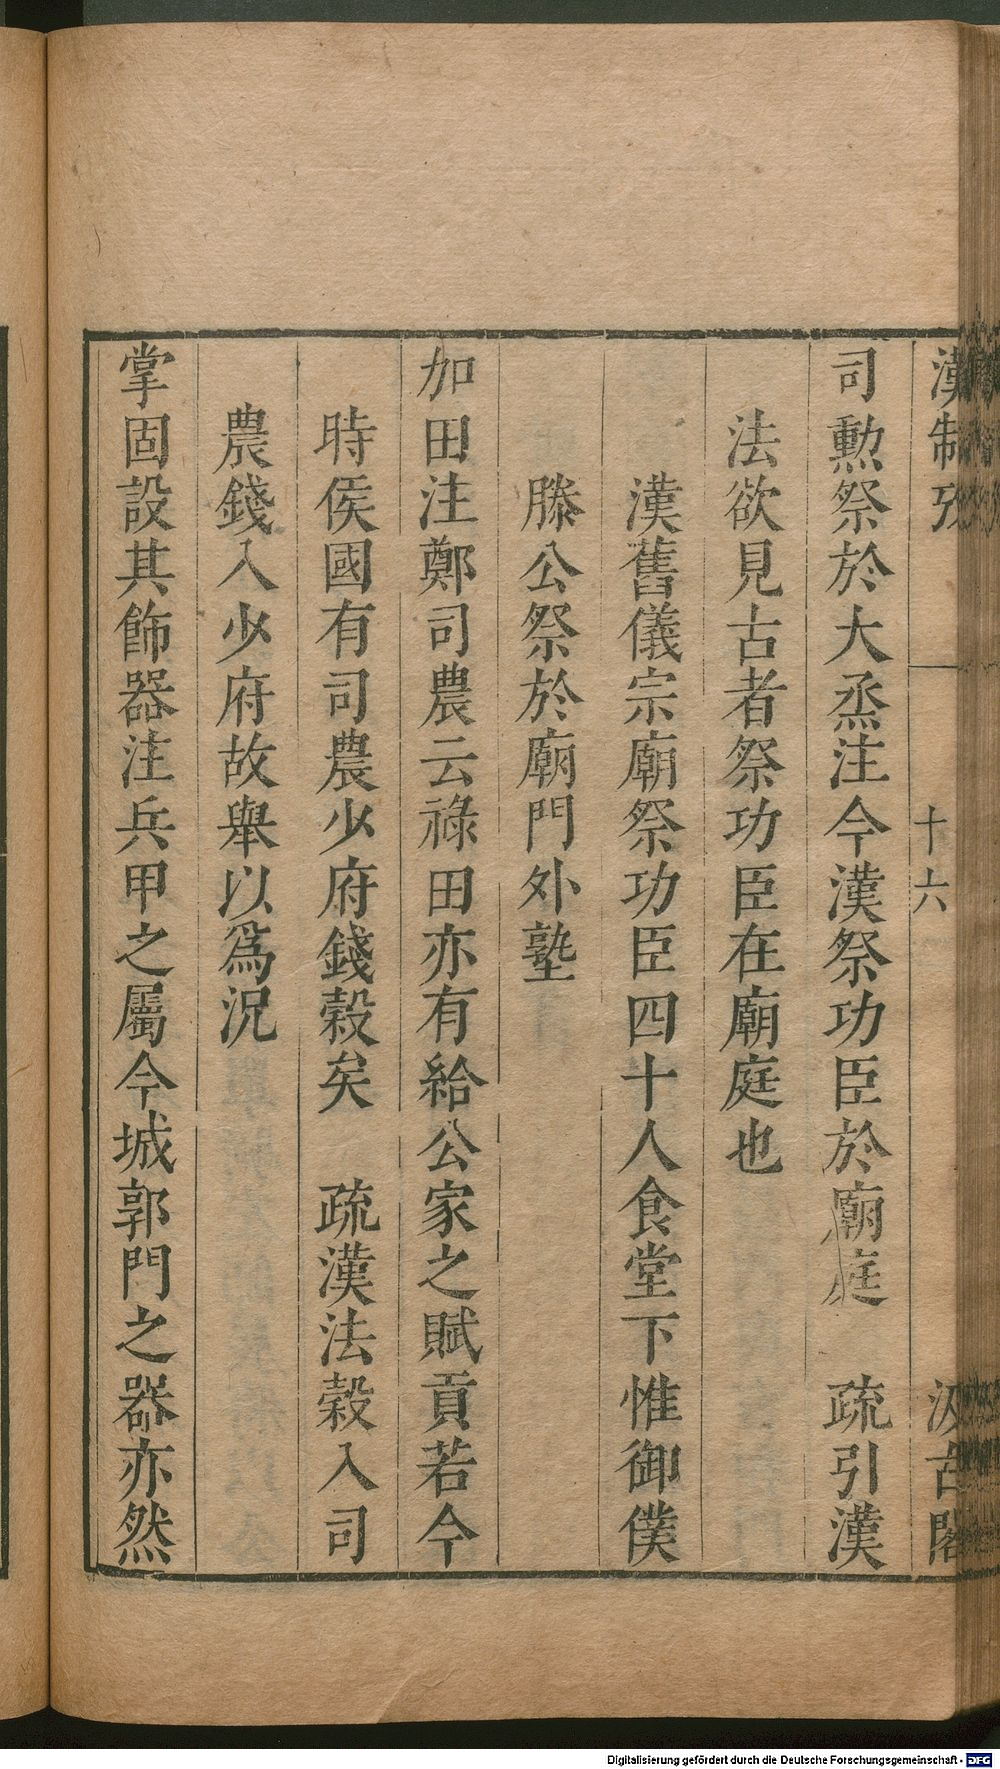 漢制攷 十六 汲古閣
司勲祭於大烝注今漢祭功臣於廟庭 疏引漢
法欲見古者祭功臣在廟庭也
漢舊儀宗廟祭功臣四十人食堂下惟御僕
滕公祭於廟門外塾
加田注鄭司農云祿田亦有給公家之賦貢若今
時侯國有司農少府錢穀矣 疏漢法穀入司
農錢入少府故舉以爲況
掌固設其飾器注兵甲之屬今城郭門之器亦然
Digitalisierung gefördert durch die Deutsche Forschungsgemeinschaft - DFG